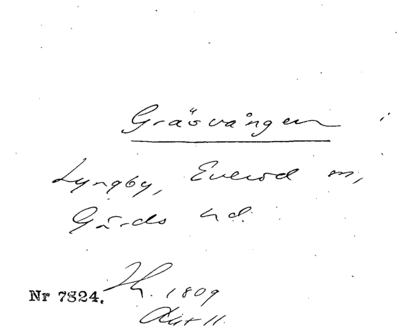 Gräsvången
Lyngby, Everöd sn,
Gärds hd.
Nr 7824. 1809
Akt 11.